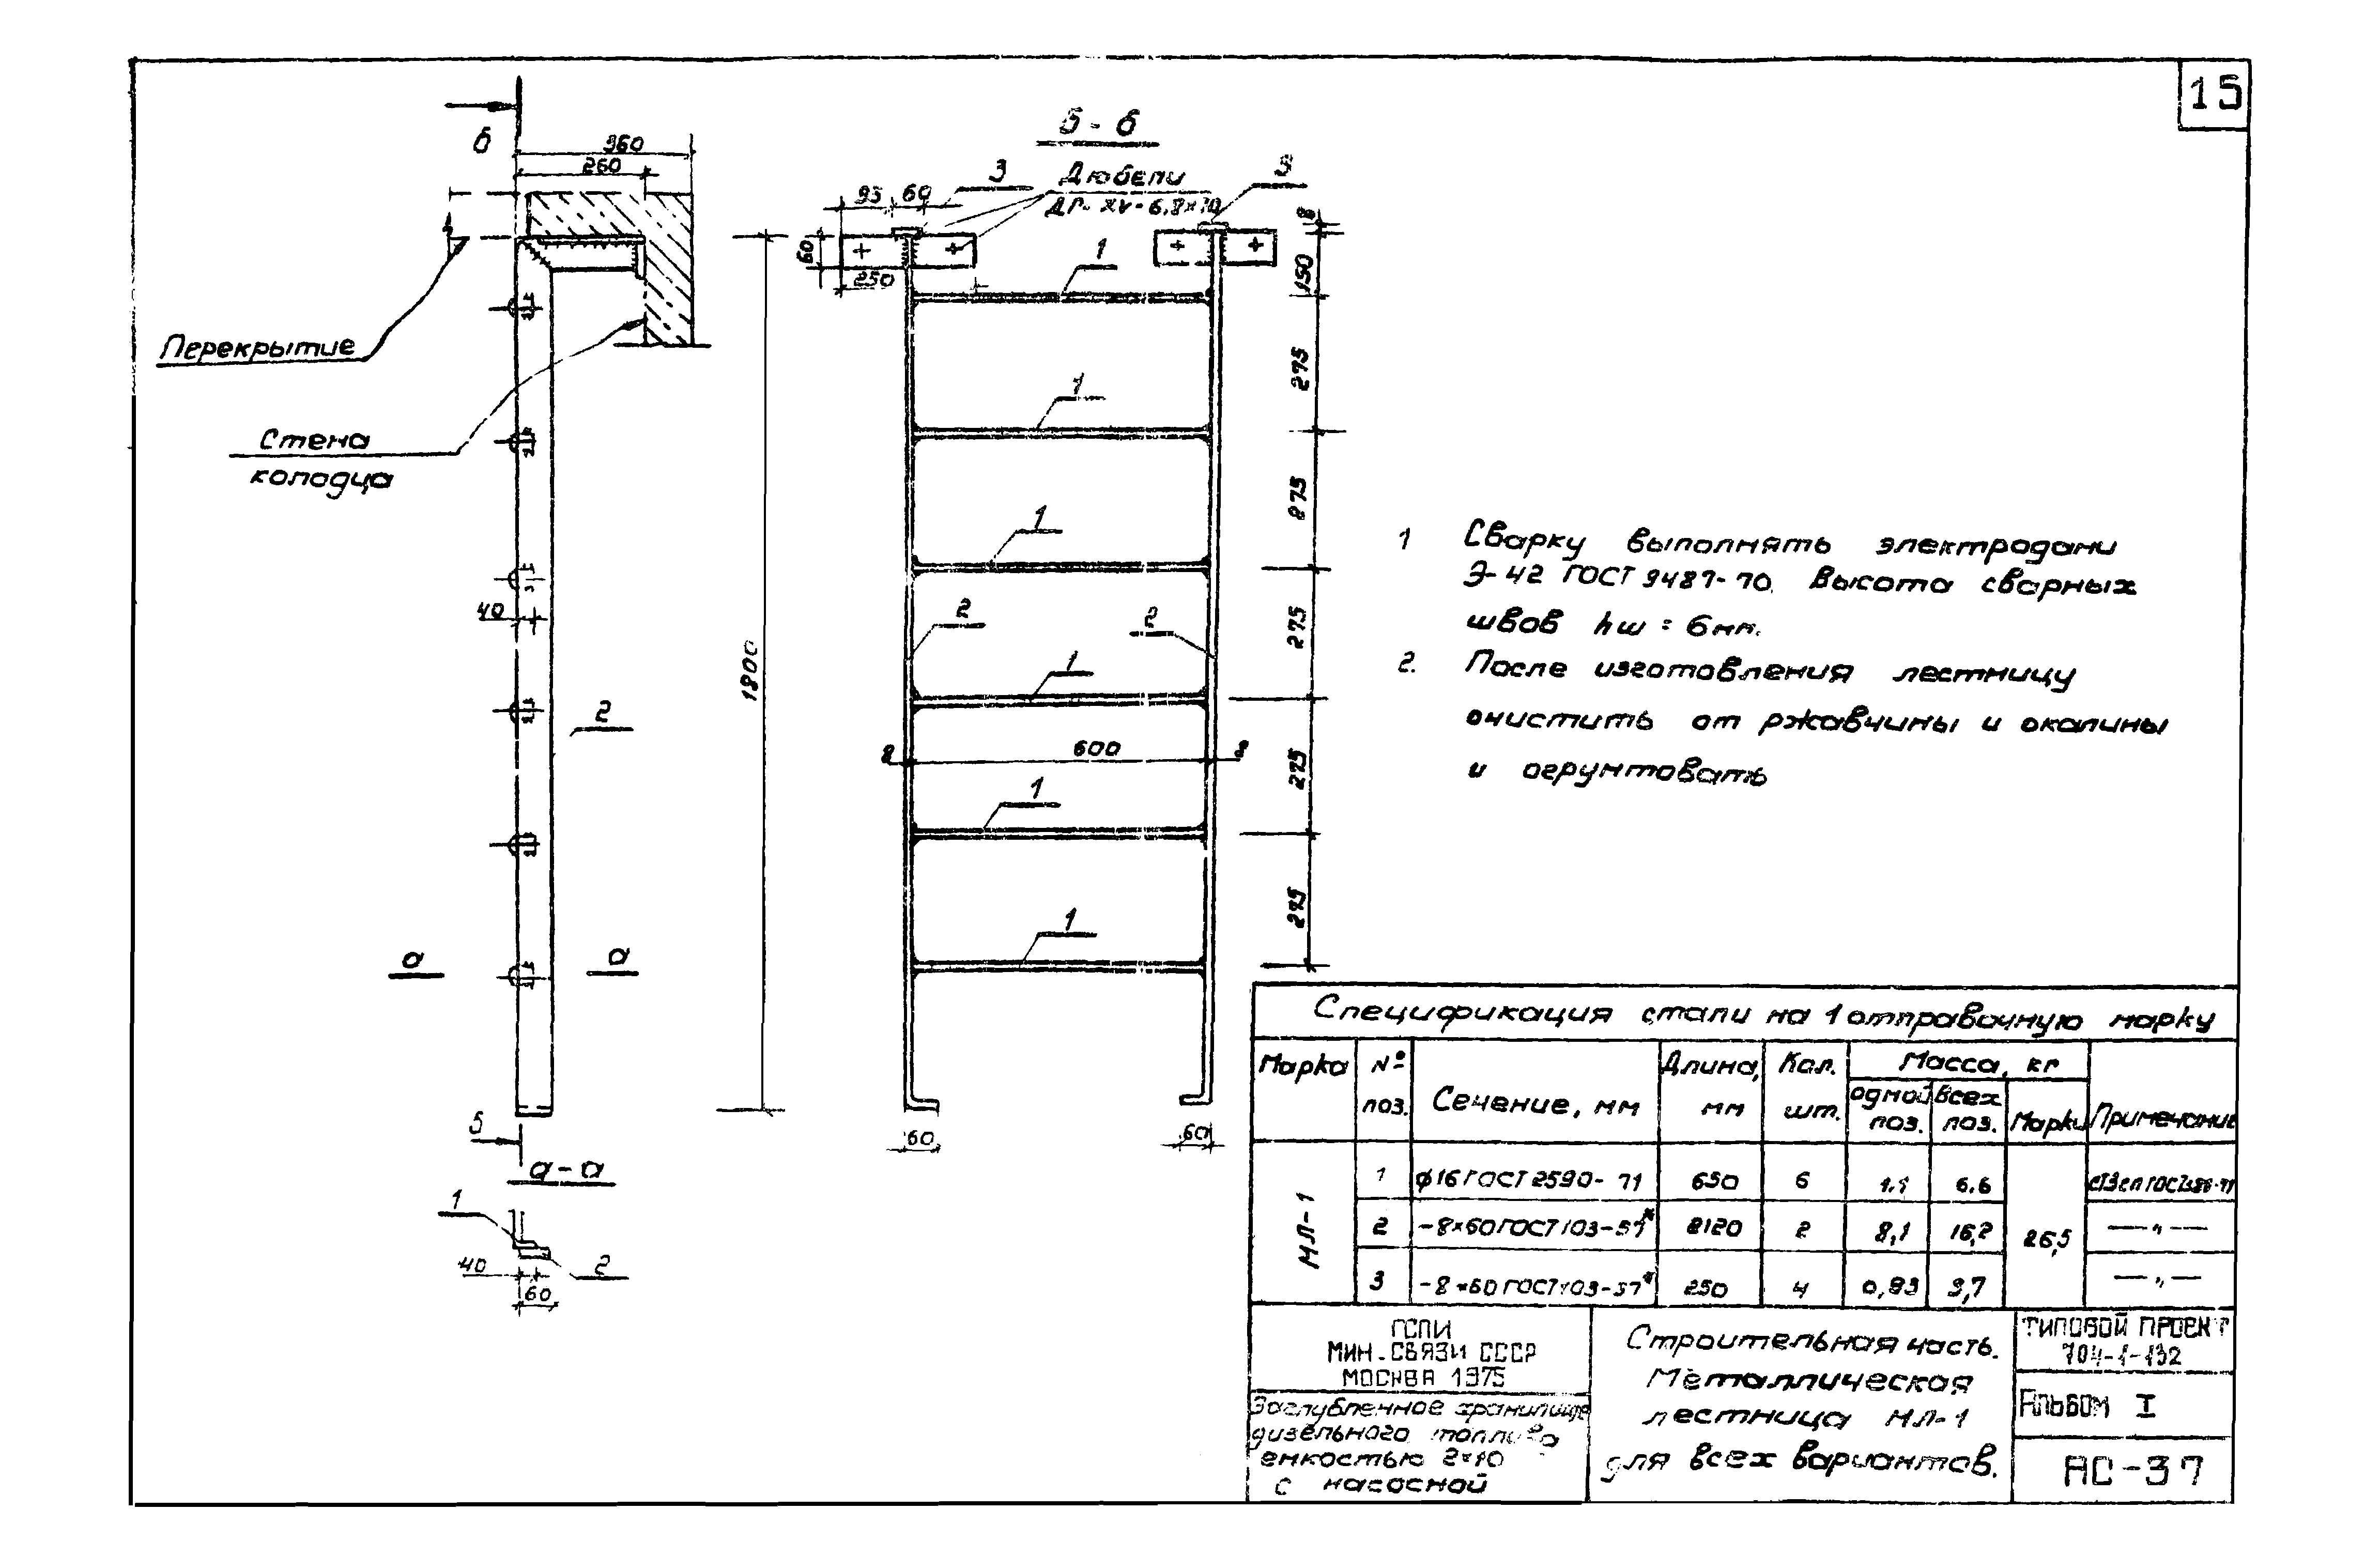 15
б
360
260
Перекрытие
Стена
колодца
40
2
1800
а
а
б
а-а
1
40
2
60
б-б
95
60
3
Дюбели
3
60
250
8
1
150
1
275
1
275
2
2
275
1
8
600
8
275
1
275
1
60
60
1 Сварку выполнять электродами
Э-42 ГОСТ 9487-70. Высота сварных
швов hш = 6мм.
2. После изготовления лестницу
очистить от ржавчины и окалины
и огрунтовать
Спецификация стали на 1 отправочную марку
Марка
№ поз.
Сечение, мм
Длина, мм
Кол. шт.
Масса, кг
одной поз.
всех поз.
Марки
Примечание
МЛ-1
1 ϕ16 ГОСТ 2590-71 650 6 1.1 6.6
2 -8×60 ГОСТ 103-57* 2120 2 8,1 16,2 26,5 —"—
3 -8×60 ГОСТ 103-57* 250 4 0,93 3,7 —"—
ГСПИ
МИН.СВЯЗИ СССР
МОСКВА 1975
Заглубленное хранилище
дизельного топлива
емкостью 2×10
с насосной
Строительная часть.
Металлическая
лестница МЛ-1
для всех вариантов.
ТИПОВОЙ ПРОЕКТ
704-1-132
Альбом I
АС-37